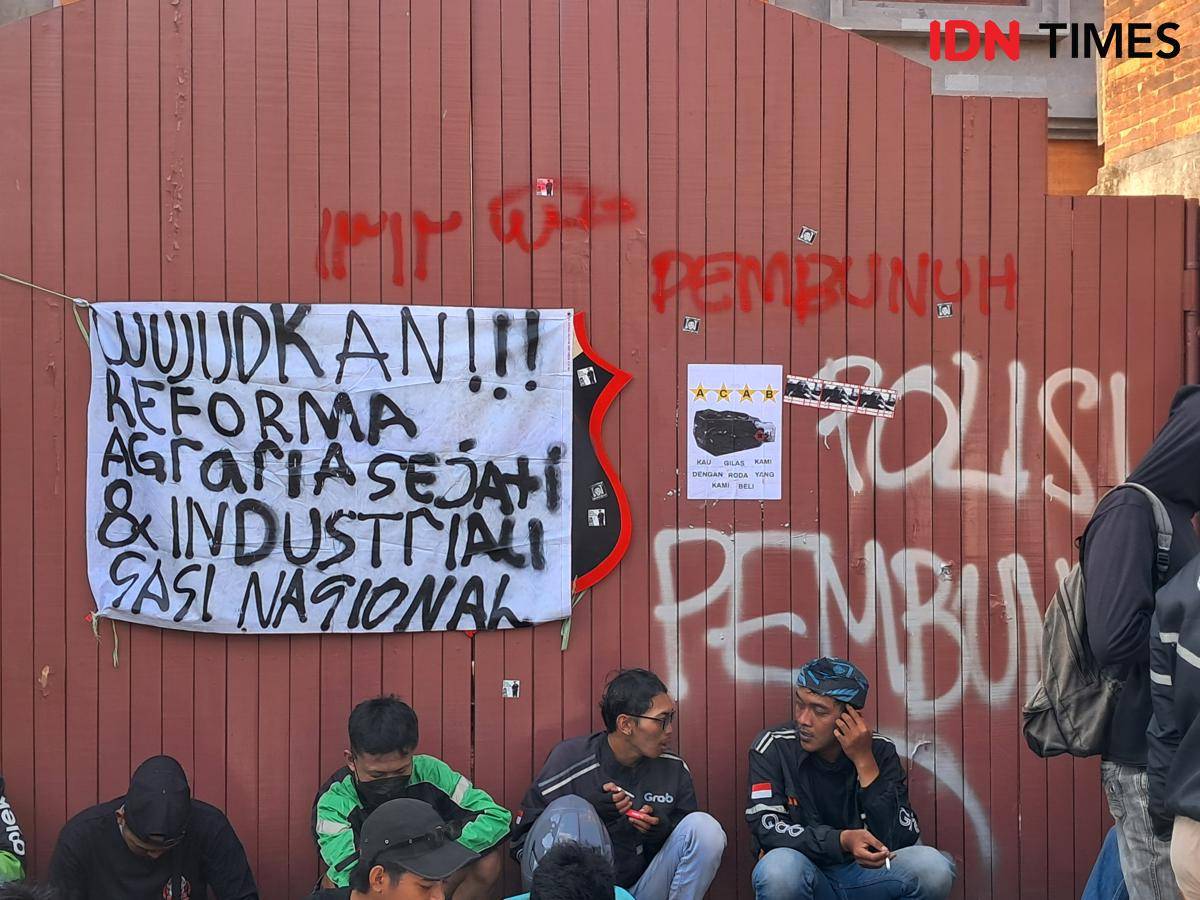 IDN TIMES
PEMBUNUH
WUJUDKAN!!!
REFORMA
AGrArIA SEJAti
& INDUSTrIALI
SASI NASIONAL
ACAB
KAU GILAS KAMI
DENGAN RODA YANG
KAMI BELI
POLISI
PEMBUN
Grab